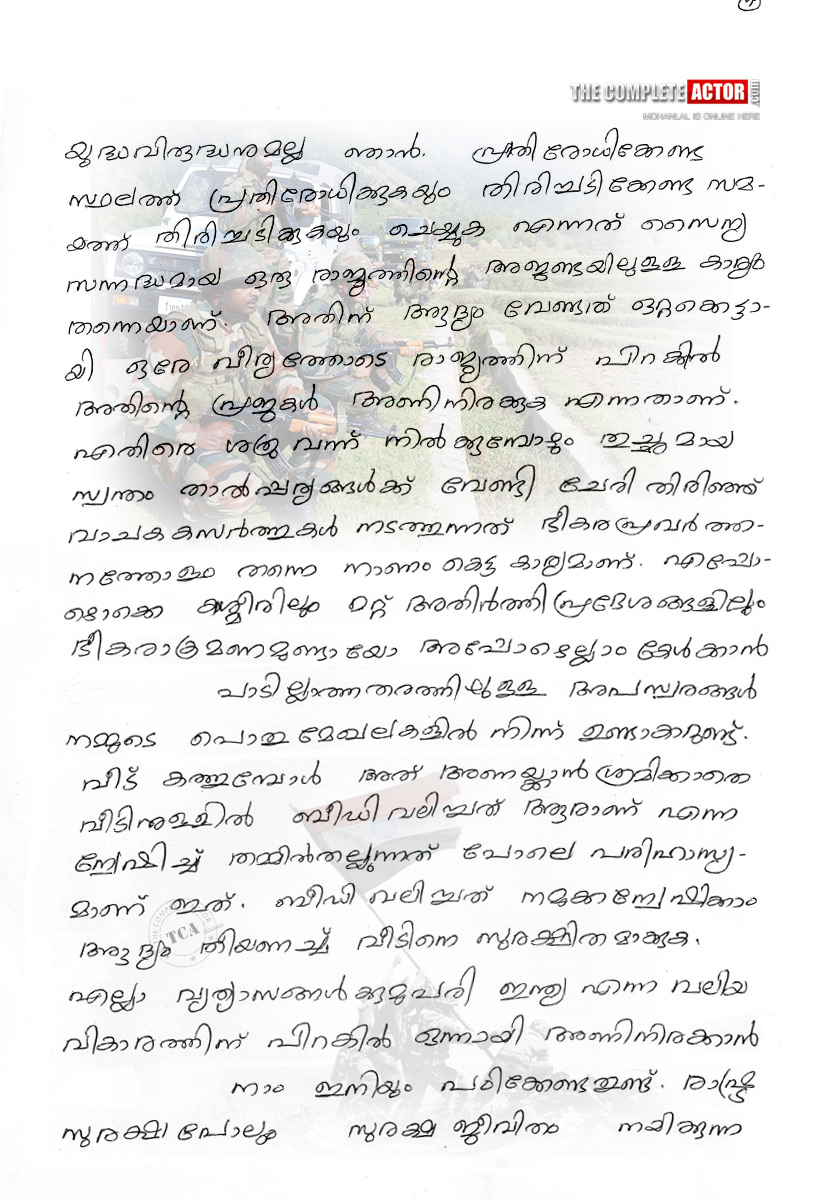 THE COMPLETE ACTOR
MOHANLAL IS ONLINE HERE
യുദ്ധവിരുദ്ധനുമല്ല ഞാൻ. പ്രതിരോധിക്കേണ്ട
സ്ഥലത്ത് പ്രതിരോധിക്കുകയും തിരിച്ചടിക്കേണ്ട സമ-
യത്ത് തിരിച്ചടിക്കുകയും ചെയ്യുക എന്നത് സൈന്യ
സന്നദ്ധമായ ഒരു രാജ്യത്തിന്റെ അജണ്ടയിലുള്ള കാര്യം
തന്നെയാണ്. അതിന് ആദ്യം വേണ്ടത് ഒറ്റക്കെട്ടാ-
യി ഒരേ വീര്യത്തോടെ രാജ്യത്തിന് പിറകിൽ
അതിന്റെ പ്രജകൾ അണിനിരക്കുക എന്നതാണ്.
എതിരെ ശത്രു വന്ന് നിൽക്കുമ്പോഴും തുച്ഛമായ
സ്വന്തം താൽപ്പര്യങ്ങൾക്ക് വേണ്ടി ചേരി തിരിഞ്ഞ്
വാചകകസർത്തുകൾ നടത്തുന്നത് ഭീകരപ്രവർത്ത-
നത്തോളം തന്നെ നാണം കെട്ട കാര്യമാണ്. എപ്പോ-
ഴൊക്കെ കശ്മീരിലും മറ്റ് അതിർത്തി പ്രദേശങ്ങളിലും
ഭീകരാക്രമണമുണ്ടായോ അപ്പോഴെല്ലാം കേൾക്കാൻ
പാടില്ലാത്തതരത്തിലുള്ള അപസ്വരങ്ങൾ
നമ്മുടെ പൊതുമേഖലകളിൽ നിന്ന് ഉണ്ടാകാറുണ്ട്.
വീട് കത്തുമ്പോൾ അത് അണയ്ക്കാൻ ശ്രമിക്കാതെ
വീടിനുള്ളിൽ ബീഡി വലിച്ചത് ആരാണ് എന്ന
ന്വേഷിച്ച് തമ്മിൽതല്ലുന്നത് പോലെ പരിഹാസ്യ-
മാണ് ഇത്. ബീഡി വലിച്ചത് നമുക്കന്വേഷിക്കാം
ആദ്യം തീയണച്ച് വീടിനെ സുരക്ഷിതമാക്കുക.
എല്ലാ വ്യത്യാസങ്ങൾക്കുമുപരി ഇന്ത്യ എന്ന വലിയ
വികാരത്തിന് പിറകിൽ ഒന്നായി അണിനിരക്കാൻ
നാം ഇനിയും പഠിക്കേണ്ടതുണ്ട്. രാഷ്ട്ര
സുരക്ഷ പോലും സുരക്ഷ ജീവിതം നയിക്കുന്ന
TCA